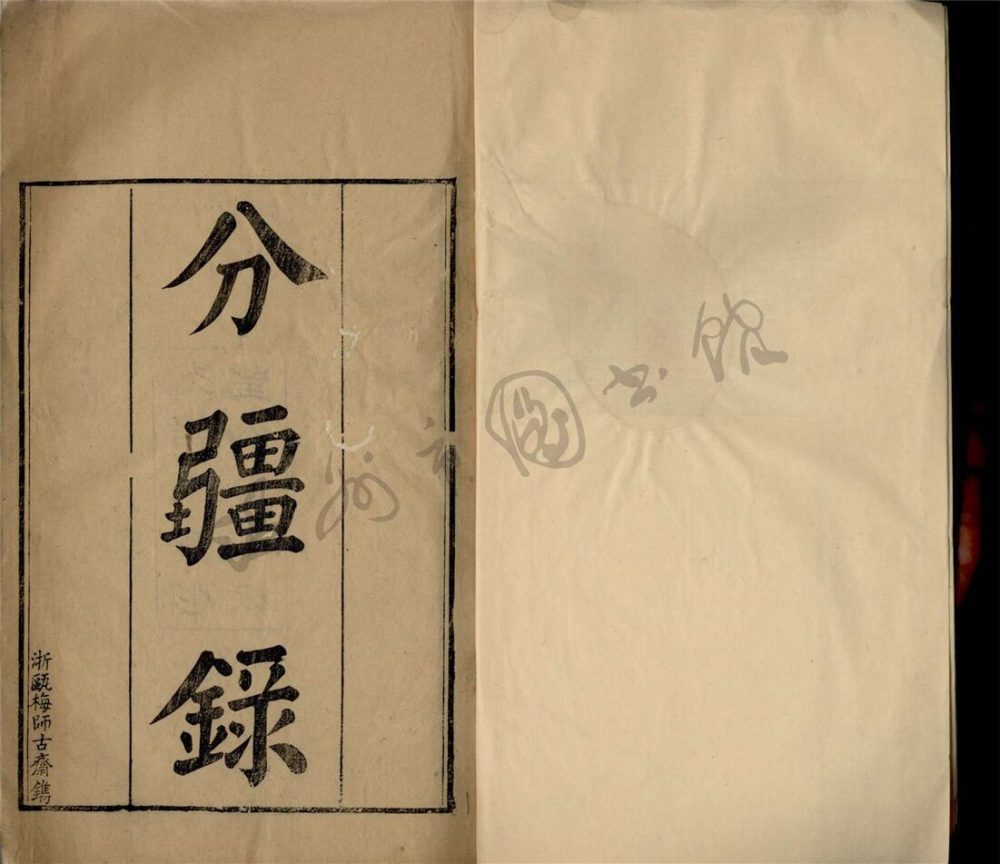 分疆錄
浙甌梅師古齋鐫
州市圖书館